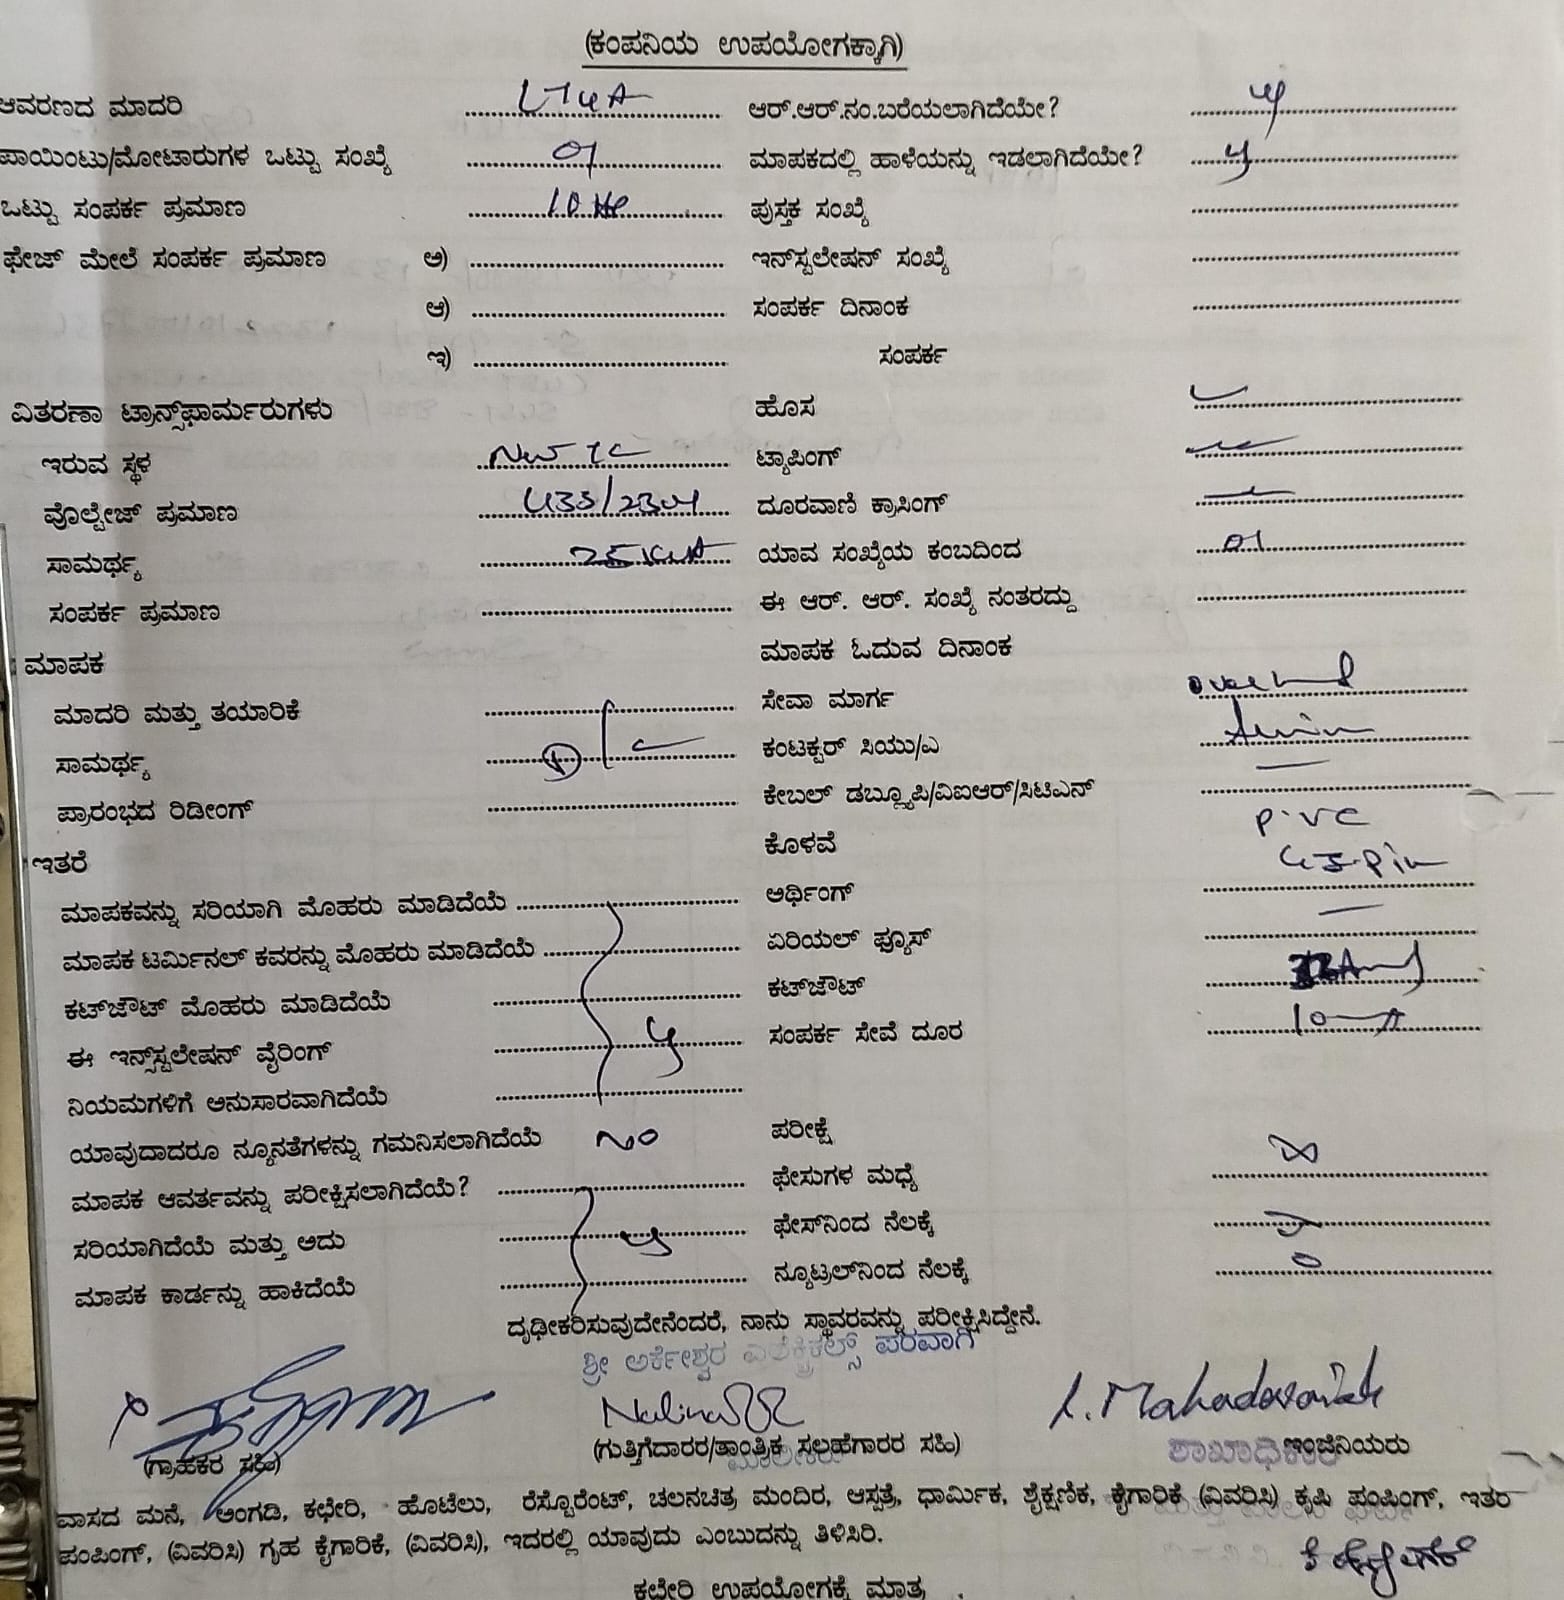 (ಕಂಪನಿಯ ಉಪಯೋಗಕ್ಕಾಗಿ)
ಆವರಣದ ಮಾದರಿ LT4A ಆರ್.ಆರ್.ನಂ.ಬರೆಯಲಾಗಿದೆಯೇ? y
ಪಾಯಿಂಟು/ಮೋಟಾರುಗಳ ಒಟ್ಟು ಸಂಖ್ಯೆ 01 ಮಾಪಕದಲ್ಲಿ ಹಾಳೆಯನ್ನು ಇಡಲಾಗಿದೆಯೇ? y
ಒಟ್ಟು ಸಂಪರ್ಕ ಪ್ರಮಾಣ 10 HP ಪುಸ್ತಕ ಸಂಖ್ಯೆ
ಫೇಜ್ ಮೇಲೆ ಸಂಪರ್ಕ ಪ್ರಮಾಣ ಅ) ಇನ್‌ಸ್ಟಲೇಷನ್ ಸಂಖ್ಯೆ
ಆ) ಸಂಪರ್ಕ ದಿನಾಂಕ
ಇ) ಸಂಪರ್ಕ
ವಿತರಣಾ ಟ್ರಾನ್ಸ್‌ಫಾರ್ಮರುಗಳು ಹೊಸ
ಇರುವ ಸ್ಥಳ New TC ಟ್ಯಾಪಿಂಗ್
ವೊಲ್ಟೇಜ್ ಪ್ರಮಾಣ 433/230V ದೂರವಾಣಿ ಕ್ರಾಸಿಂಗ್
ಸಾಮರ್ಥ್ಯ 25 KVA ಯಾವ ಸಂಖ್ಯೆಯ ಕಂಬದಿಂದ 01
ಸಂಪರ್ಕ ಪ್ರಮಾಣ ಈ ಆರ್. ಆರ್. ಸಂಖ್ಯೆ ನಂತರದ್ದು
ಮಾಪಕ ಮಾಪಕ ಓದುವ ದಿನಾಂಕ
ಮಾದರಿ ಮತ್ತು ತಯಾರಿಕೆ ಸೇವಾ ಮಾರ್ಗ
ಸಾಮರ್ಥ್ಯ ಕಂಟಕ್ಟರ್ ಸಿಯು/ಎ
ಪ್ರಾರಂಭದ ರಿಡೀಂಗ್ ಕೇಬಲ್ ಡಬ್ಲ್ಯೂಪಿ/ವಿಐಆರ್/ಸಿಟಿಎನ್ —
ಇತರೆ ಕೊಳವೆ P.V.C
ಮಾಪಕವನ್ನು ಸರಿಯಾಗಿ ಮೊಹರು ಮಾಡಿದೆಯೆ ಅರ್ಥಿಂಗ್
ಮಾಪಕ ಟರ್ಮಿನಲ್ ಕವರನ್ನು ಮೊಹರು ಮಾಡಿದೆಯೆ ಏರಿಯಲ್ ಫ್ಯೂಸ್ —
ಕಟ್‌ಔಟ್ ಮೊಹರು ಮಾಡಿದೆಯೆ ಕಟ್‌ಔಟ್
ಈ ಇನ್ಸ್‌ಸ್ಟಲೇಷನ್ ವೈರಿಂಗ್ y ಸಂಪರ್ಕ ಸೇವೆ ದೂರ
ನಿಯಮಗಳಿಗೆ ಅನುಸಾರವಾಗಿದೆಯೆ
ಯಾವುದಾದರೂ ನ್ಯೂನತೆಗಳನ್ನು ಗಮನಿಸಲಾಗಿದೆಯೆ NO ಪರೀಕ್ಷೆ
ಮಾಪಕ ಆವರ್ತವನ್ನು ಪರೀಕ್ಷಿಸಲಾಗಿದೆಯೆ? ಫೇಸುಗಳ ಮಧ್ಯೆ
ಸರಿಯಾಗಿದೆಯೆ ಮತ್ತು ಅದು y ಫೇಸ್‌ನಿಂದ ನೆಲಕ್ಕೆ
ಮಾಪಕ ಕಾರ್ಡನ್ನು ಹಾಕಿದೆಯೆ ನ್ಯೂಟ್ರಲ್‌ನಿಂದ ನೆಲಕ್ಕೆ 0
ದೃಢೀಕರಿಸುವುದೇನೆಂದರೆ, ನಾನು ಸ್ಥಾವರವನ್ನು ಪರೀಕ್ಷಿಸಿದ್ದೇನೆ.
ಶ್ರೀ ಅರ್ಕೇಶ್ವರ ಎಲೆಕ್ಟ್ರಿಕಲ್ಸ್ ಪರವಾಗಿ
(ಗ್ರಾಹಕರ ಸಹಿ) (ಗುತ್ತಿಗೆದಾರರ/ತಾಂತ್ರಿಕ ಸಲಹೆಗಾರರ ಸಹಿ) ಇಂಜಿನಿಯರು
ವಾಸದ ಮನೆ, ಅಂಗಡಿ, ಕಛೇರಿ, ಹೊಟೆಲು, ರೆಸ್ಟೊರೆಂಟ್, ಚಲನಚಿತ್ರ ಮಂದಿರ, ಆಸ್ಪತ್ರೆ, ಧಾರ್ಮಿಕ, ಶೈಕ್ಷಣಿಕ, ಕೈಗಾರಿಕೆ (ವಿವರಿಸಿ) ಕೃಷಿ ಪಂಪಿಂಗ್, ಇತರ
ಪಂಪಿಂಗ್, (ವಿವರಿಸಿ) ಗೃಹ ಕೈಗಾರಿಕೆ, (ವಿವರಿಸಿ), ಇದರಲ್ಲಿ ಯಾವುದು ಎಂಬುದನ್ನು ತಿಳಿಸಿರಿ.
ಕಛೇರಿ ಉಪಯೋಗಕ್ಕೆ ಮಾತ್ರ